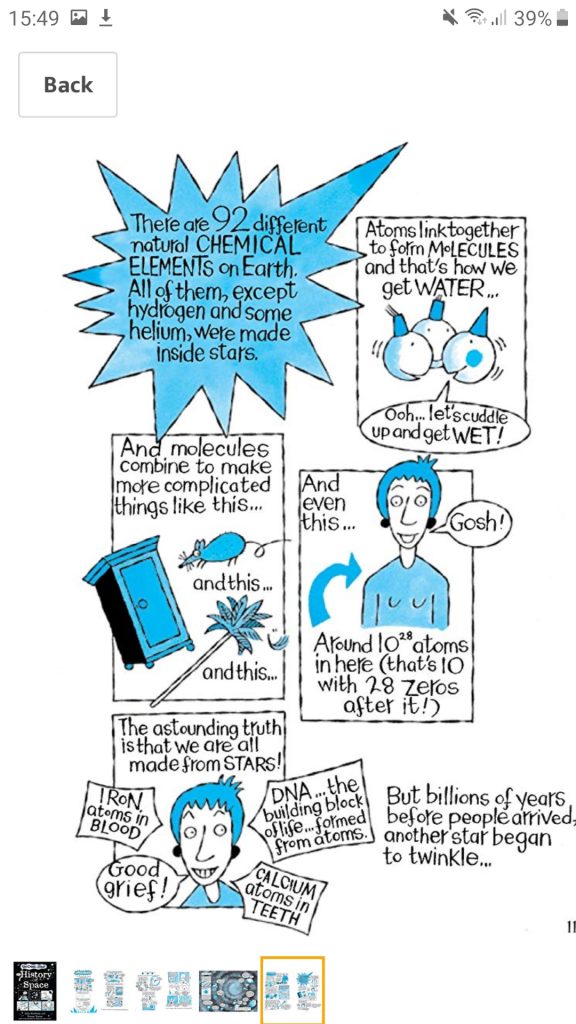 15:49
39%
Back
There are 92 different
natural CHEMICAL
ELEMENTS on Earth.
All of them, except
hydrogen and some
helium, were made
inside stars.
Atoms link together
to form MOLECULES
and that's how we
get WATER...
Ooh... let's cuddle
up and get WET!
And molecules
combine to make
more complicated
things like this...
and this...
and this...
And
even
this...
Gosh!
Around 10²⁸ atoms
in here (that's 10
with 28 zeros
after it!)
The astounding truth
is that we are all
made from STARS!
IRON
atoms in
BLOOD
DNA...the
building block
of life...formed
from atoms.
Good
grief!
CALCIUM
atoms in
TEETH
But billions of years
before people arrived,
another star began
to twinkle...
11
History
Space